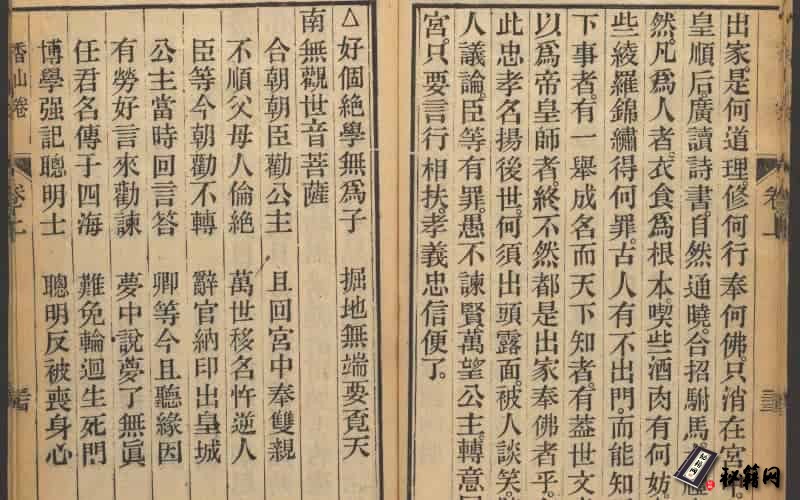 出家是何道理。修何行奉何佛。只消在宮
皇順后。廣讀詩書。自然通曉。合招駙馬。
然。凡爲人者。衣食爲根本。喫些酒肉有何妨。
些綾羅錦繡得何罪。古人有不出門。而能知
下事者。有一舉成名而天下知者。有蓋世文
以爲帝皇師者。終不然都是出家奉佛者乎。
此忠孝名揚後世。何須出頭露面。被人談笑。
人議論。臣等有罪。愚不諫賢。萬望公主。轉意
宮。只要言行相扶。孝義忠信便了。
卷上
△好個絶學無爲子 掘地無端要覔天
南無觀世音菩薩
合朝朝臣勸公主 且回宮中奉雙親
不順父母人倫絶 萬世移名忤逆人
臣等今朝勸不轉 辭官納印出皇城
公主當時回言答 卿等今且聽緣因
有勞好言來勸諫 夢中說夢了無眞
任君名傳于四海 難免輪迴生死門
博學强記聰明士 聰明反被喪身心
香山卷
卷上
秘籍网